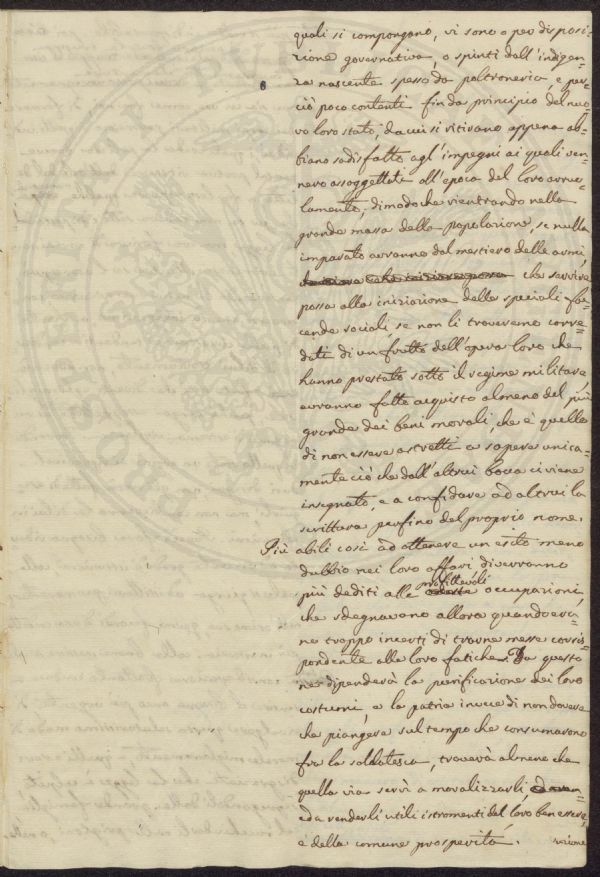 quali si compongono, vi sono o per disposi-
zione governativa, o spinti dall'indigen-
za nascente spesso da poltroneria, e per-
ciò poco contenti fin da principio del nuo-
vo loro stato, da cui si ritirano appena ab-
biano sodisfatto agl'impegni ai quali ven-
nero assoggettati all'epoca del loro arruo-
lamento, dimodoche rientrando nella
grande massa della popolazione, se nulla
imparato avranno dal mestiero delle armi,
che servire
possa alla iniziazione delle speciali fac-
cende sociali, se non li troveremo corre-
dati di un frutto dell'opera loro che
hanno prestato sotto il regime militare,
avranno fatto acquisto almeno del più
grande dei beni morali, che è quello
di non essere astretti a sapere unica-
mente ciò che dall'altrui bocca ci viene
insegnato, e a confidare ad altrui la
scrittura perfino del proprio nome.
Più abili così ad ottenere un esito meno
dubbio nei loro affari diverranno
più dediti alle profittevoli occupazioni,
che sdegnavano allora quando era-
no troppo incerti di trarne messe corris-
pondente alle loro fatiche. Da questo
ne dipenderà la purificazione dei loro
costumi, e la patria invece di non dovere
che piangere sul tempo che consumarono
fra la soldatesca, troverà almeno che
quella via servì a moralizzarli,
ed a renderli utili istromenti del loro ben essere,
e della comune prosperità.
PROSPERITA PUB